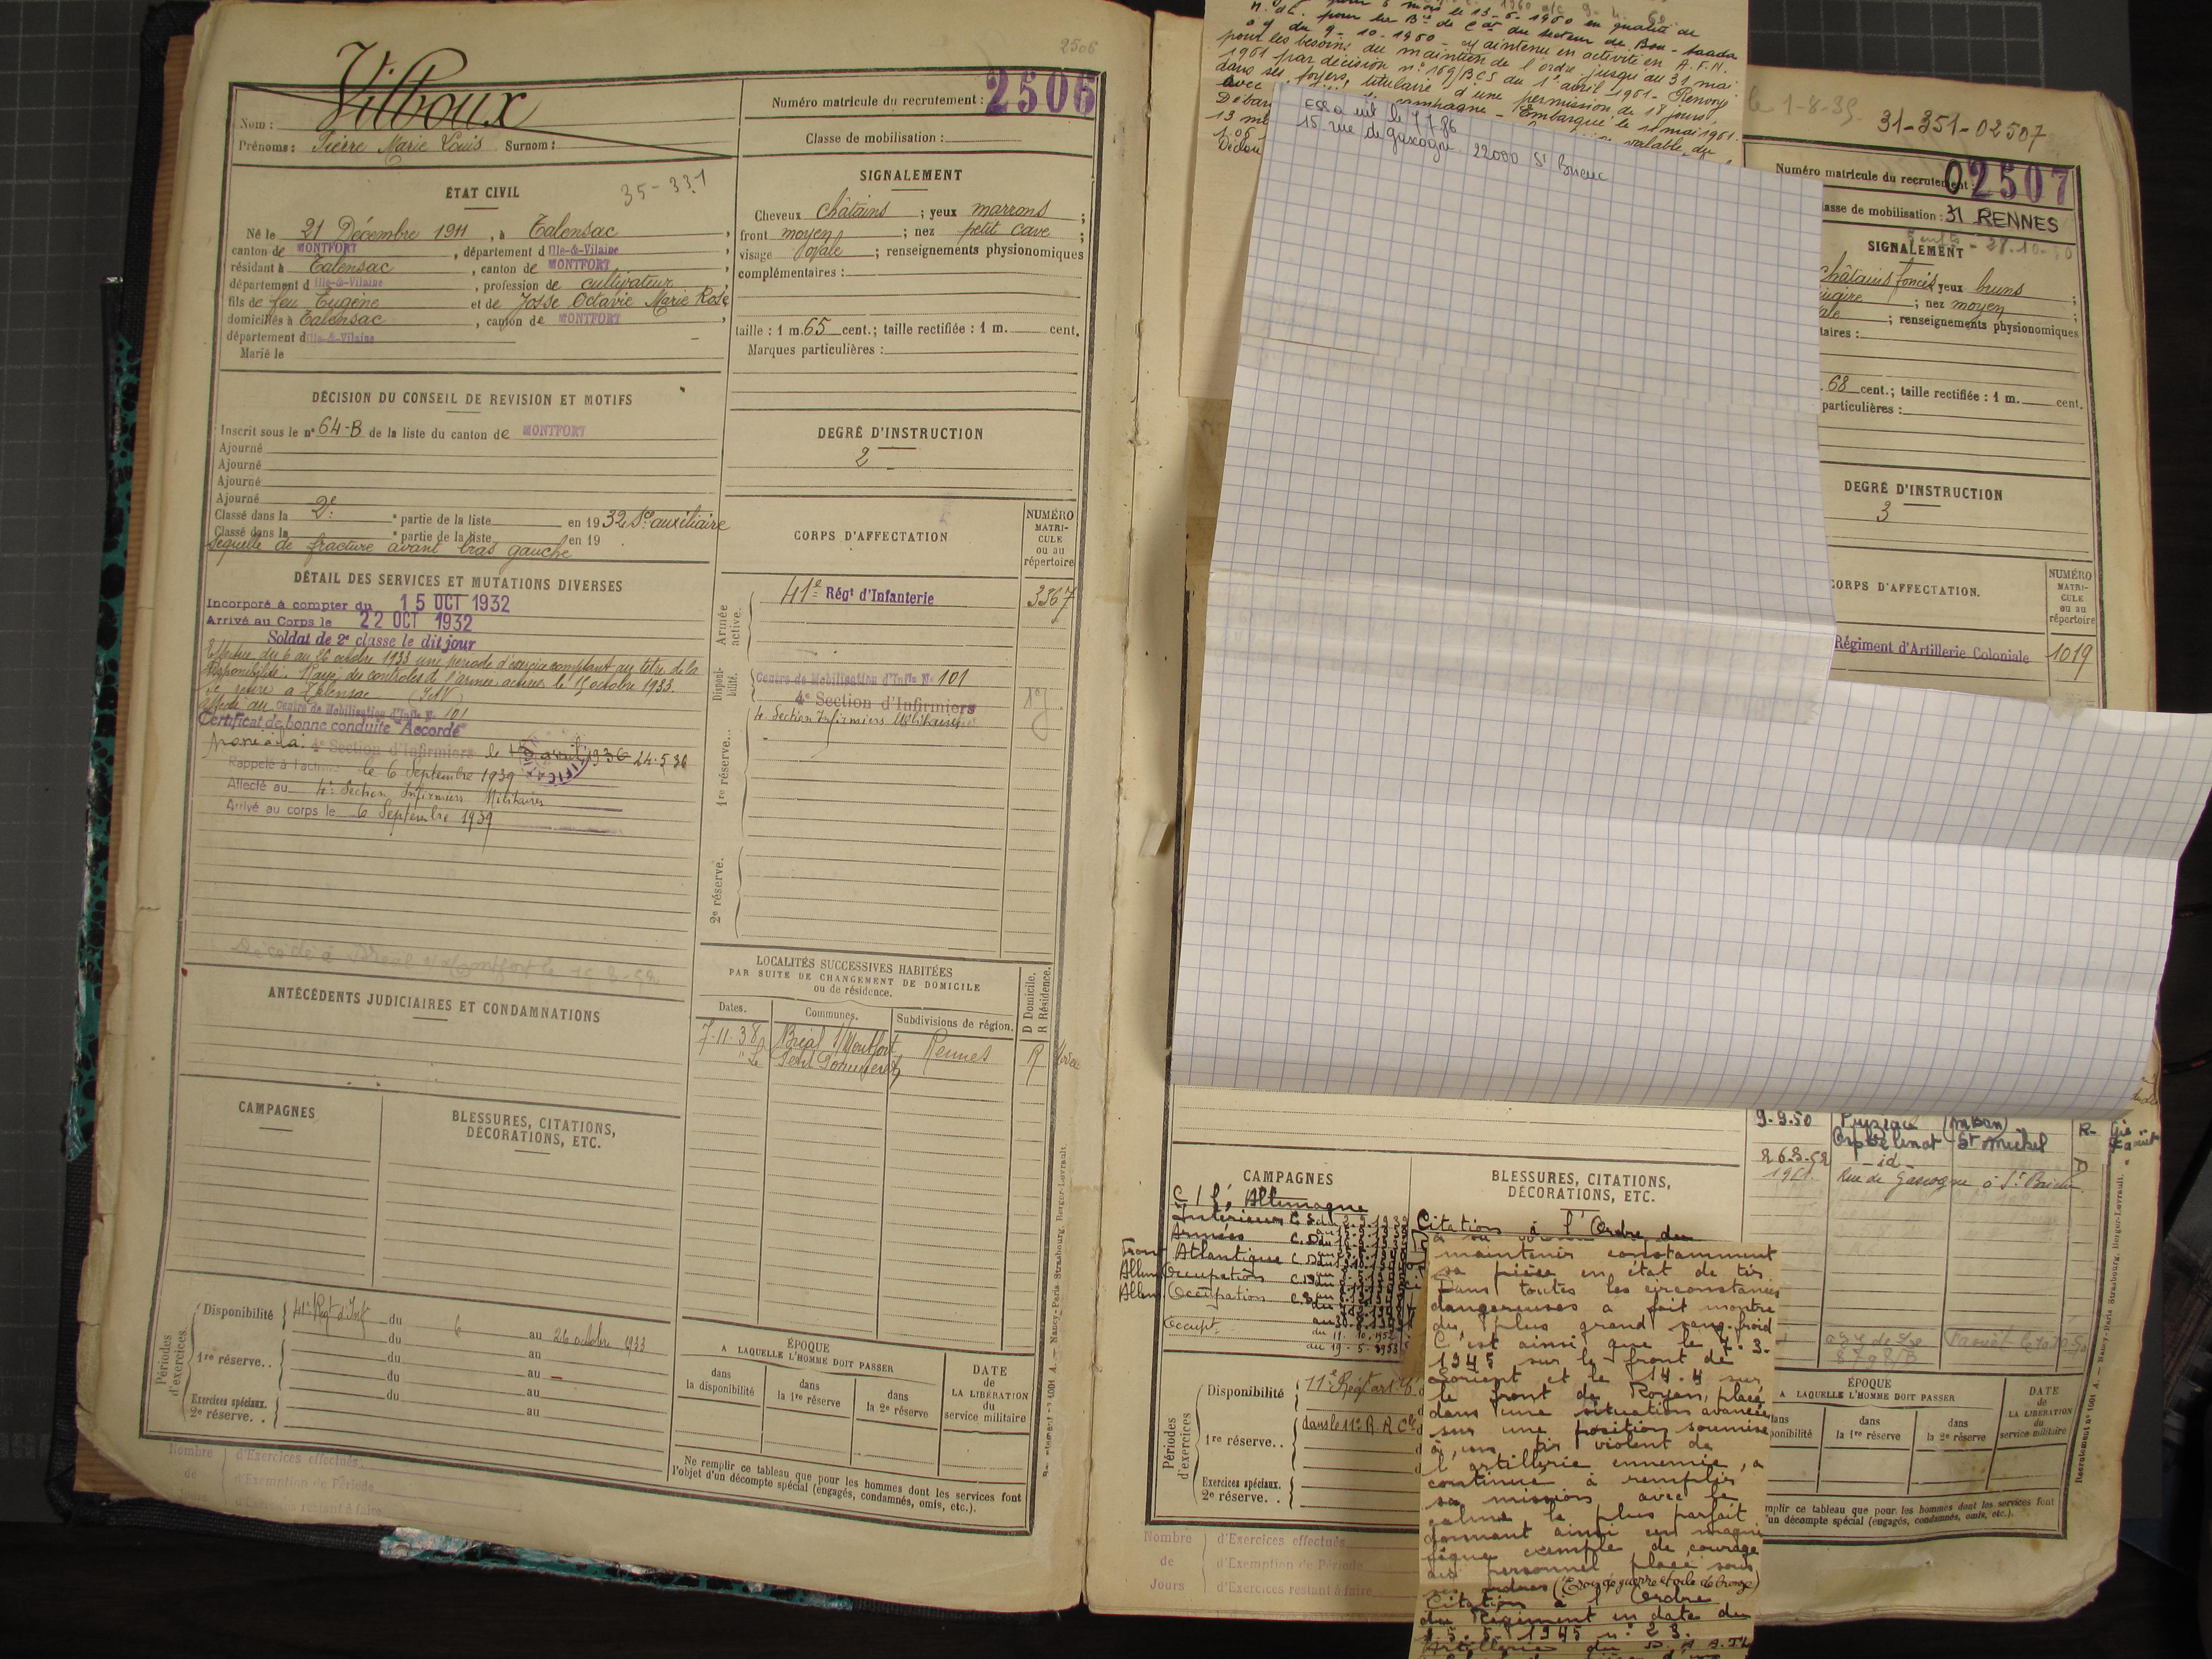 2506
Vilboux
Nom :
Prénoms : Pierre Marie Louis Surnom :
Numéro matricule du recrutement : 2506
Classe de mobilisation :
ÉTAT CIVIL
35-331
Né le 21 Décembre 1911, à Talensac,
canton de MONTFORT, département d Ille-&-Vilaine,
résidant à Talensac, canton de MONTFORT,
département d Ille-&-Vilaine, profession de cultivateur
fils de feu Eugène et de Josse Octavie Marie Rose
domiciliés à Talensac, canton de MONTFORT,
département d Ille-&-Vilaine
Marié le
SIGNALEMENT
Cheveux châtains ; yeux marrons ;
front moyen ; nez petit cave ;
visage ovale ; renseignements physionomiques
complémentaires :
taille : 1 m. 65 cent.; taille rectifiée : 1 m. cent.
Marques particulières :
DÉCISION DU CONSEIL DE REVISION ET MOTIFS
Inscrit sous le n° 64-B de la liste du canton de MONTFORT
Ajourné
Ajourné
Ajourné
Ajourné
Classé dans la 2e partie de la liste en 1932 Sce auxiliaire
Classé dans la e partie de la liste en 19
Séquelle de fracture avant bras gauche
DEGRÉ D'INSTRUCTION
2
DÉTAIL DES SERVICES ET MUTATIONS DIVERSES
Incorporé à compter du 15 OCT 1932
Arrivé au Corps le 22 OCT 1932
Soldat de 2e classe le dit jour
Effectue du 6 au 26 octobre 1933 une période d'exercice comptant au titre de la
disponibilité. Rayé des contrôles de l'armée active le 15 octobre 1933.
Se retire à Talensac
Affecté au Centre de Mobilisation d'Infie N° 101
Certificat de bonne conduite Accordé
4e Section d'Infirmiers le avril 1936 24.5.36
Rappelé à l'activité le 6 Septembre 1939
Affecté au 4e Section Infirmiers Militaires
Arrivé au corps le 6 Septembre 1939
CORPS D'AFFECTATION
NUMÉRO MATRICULE ou au répertoire
Armée active.
41e Régt d'Infanterie 3367
Disponibilité.
Centre de Mobilisation d'Infie N° 101
4e Section d'Infirmiers
4e Section Infirmiers Militaires
1re réserve...
2e réserve.
Décédé à Bréal s/ Montfort le
ANTÉCÉDENTS JUDICIAIRES ET CONDAMNATIONS
LOCALITÉS SUCCESSIVES HABITÉES
PAR SUITE DE CHANGEMENT DE DOMICILE
ou de résidence.
Dates. Communes. Subdivisions de région. D Domicile. R Résidence.
7.11.38 Bréal s/Montfort Rennes R
CAMPAGNES
BLESSURES, CITATIONS,
DÉCORATIONS, ETC.
Périodes d'exercices.
Disponibilité 41e Régt d'Inf du 6 au 26 octobre 1933
du au
1re réserve.. du au
du au
Exercices spéciaux. 2e réserve. . du au
au
Nombre de Jours
d'Exercices effectués
d'Exemption de Période
d'Exercices restant à faire
ÉPOQUE
A LAQUELLE L'HOMME DOIT PASSER
dans la disponibilité
dans la 1re réserve
dans la 2e réserve
DATE de LA LIBÉRATION du service militaire
Ne remplir ce tableau que pour les hommes dont les services font
l'objet d'un décompte spécial (engagés, condamnés, omis, etc.).
pour 6 mois le 13-6-1960 en qualité de
pour la Bie de Cdt du secteur de Bou-Saada
du 9-10-1960 - Maintenu en activité en A.F.N.
pour les besoins du maintien de l'ordre jusqu'au 31 mai
1961 par décision n° 169/BCS du 1er avril 1961 - Renvoyé
dans ses foyers, titulaire d'une permission de 18 jours
avec campagne - Embarqué le 11 mai 1961.
15 rue de gascogne 22000 St Brieuc
le 1-8-35
31-351-02507
Numéro matricule du recrutement : 02507
asse de mobilisation : 31 RENNES
SIGNALEMENT
châtains foncés yeux bruns ;
; nez moyen ;
ale ; renseignements physionomiques
taires :
68 cent.; taille rectifiée : 1 m. cent.
particulières :
DEGRÉ D'INSTRUCTION
3
CORPS D'AFFECTATION.
NUMÉRO MATRICULE ou au répertoire
Régiment d'Artillerie Coloniale 1019
9.9.50
Orphelinat St Michel
-id-
1961. Rue de Gascogne à St Brieuc
CAMPAGNES
C/ l'Allemagne
Intérieur
Armées
Front Atlantique
Occupation
Occupation
Occupt.
du 11.10.1952
du 19.5.1953
BLESSURES, CITATIONS,
DÉCORATIONS, ETC.
Citation à l'Ordre du
maintenir constamment
sa pièce en état de tir
Dans toutes les circonstances
dangereuses a fait montre
du plus grand sang-froid
C'est ainsi que le 7.3.
1945 sur le front de
Lorient et le 14.4 sur
le front de Royan, placé
dans une situation avancée
sur une position soumise
à un tir violent de
l'artillerie ennemie, a
continué à remplir
sa mission avec le
calme le plus parfait
donnant ainsi un magni
fique exemple de courage
au personnel placé sous
ses ordres (Croix de guerre étoile de bronze)
Citation à l'Ordre
du Régiment en date du
5.5.1945 n° 23.
Périodes d'exercices
Disponibilité 11e Régt art
1re réserve.. dans le 11e R.A.C
Exercices spéciaux. 2e réserve. .
Nombre de Jours
d'Exercices effectués
d'Exemption de Période
d'Exercices restant à faire
ÉPOQUE
A LAQUELLE L'HOMME DOIT PASSER
dans la 1re réserve
dans la 2e réserve
DATE de LA LIBÉRATION du service militaire
mplir ce tableau que pour les hommes dont les services font
'un décompte spécial (engagés, condamnés, omis, etc.).